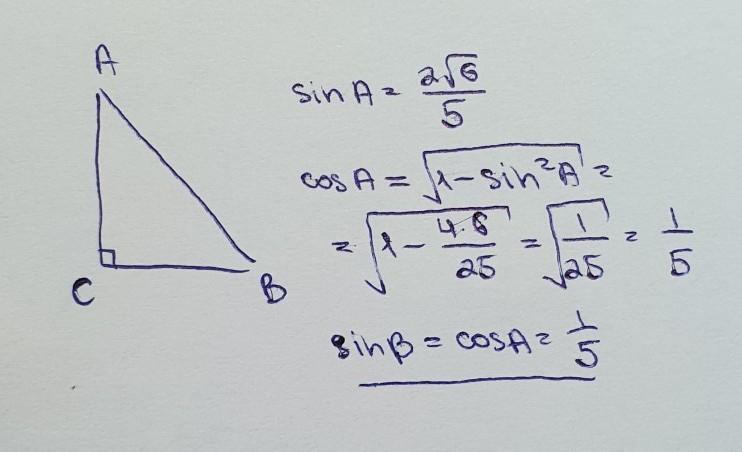 A
C
B
sin A = 2√6/5
cos A = √(1-sin²A) =
= √(1 - 4·6/25) = √(1/25) = 1/5
sin B = cos A = 1/5